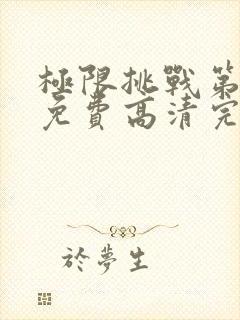 極限挑戰第
免費高清完
於夢生